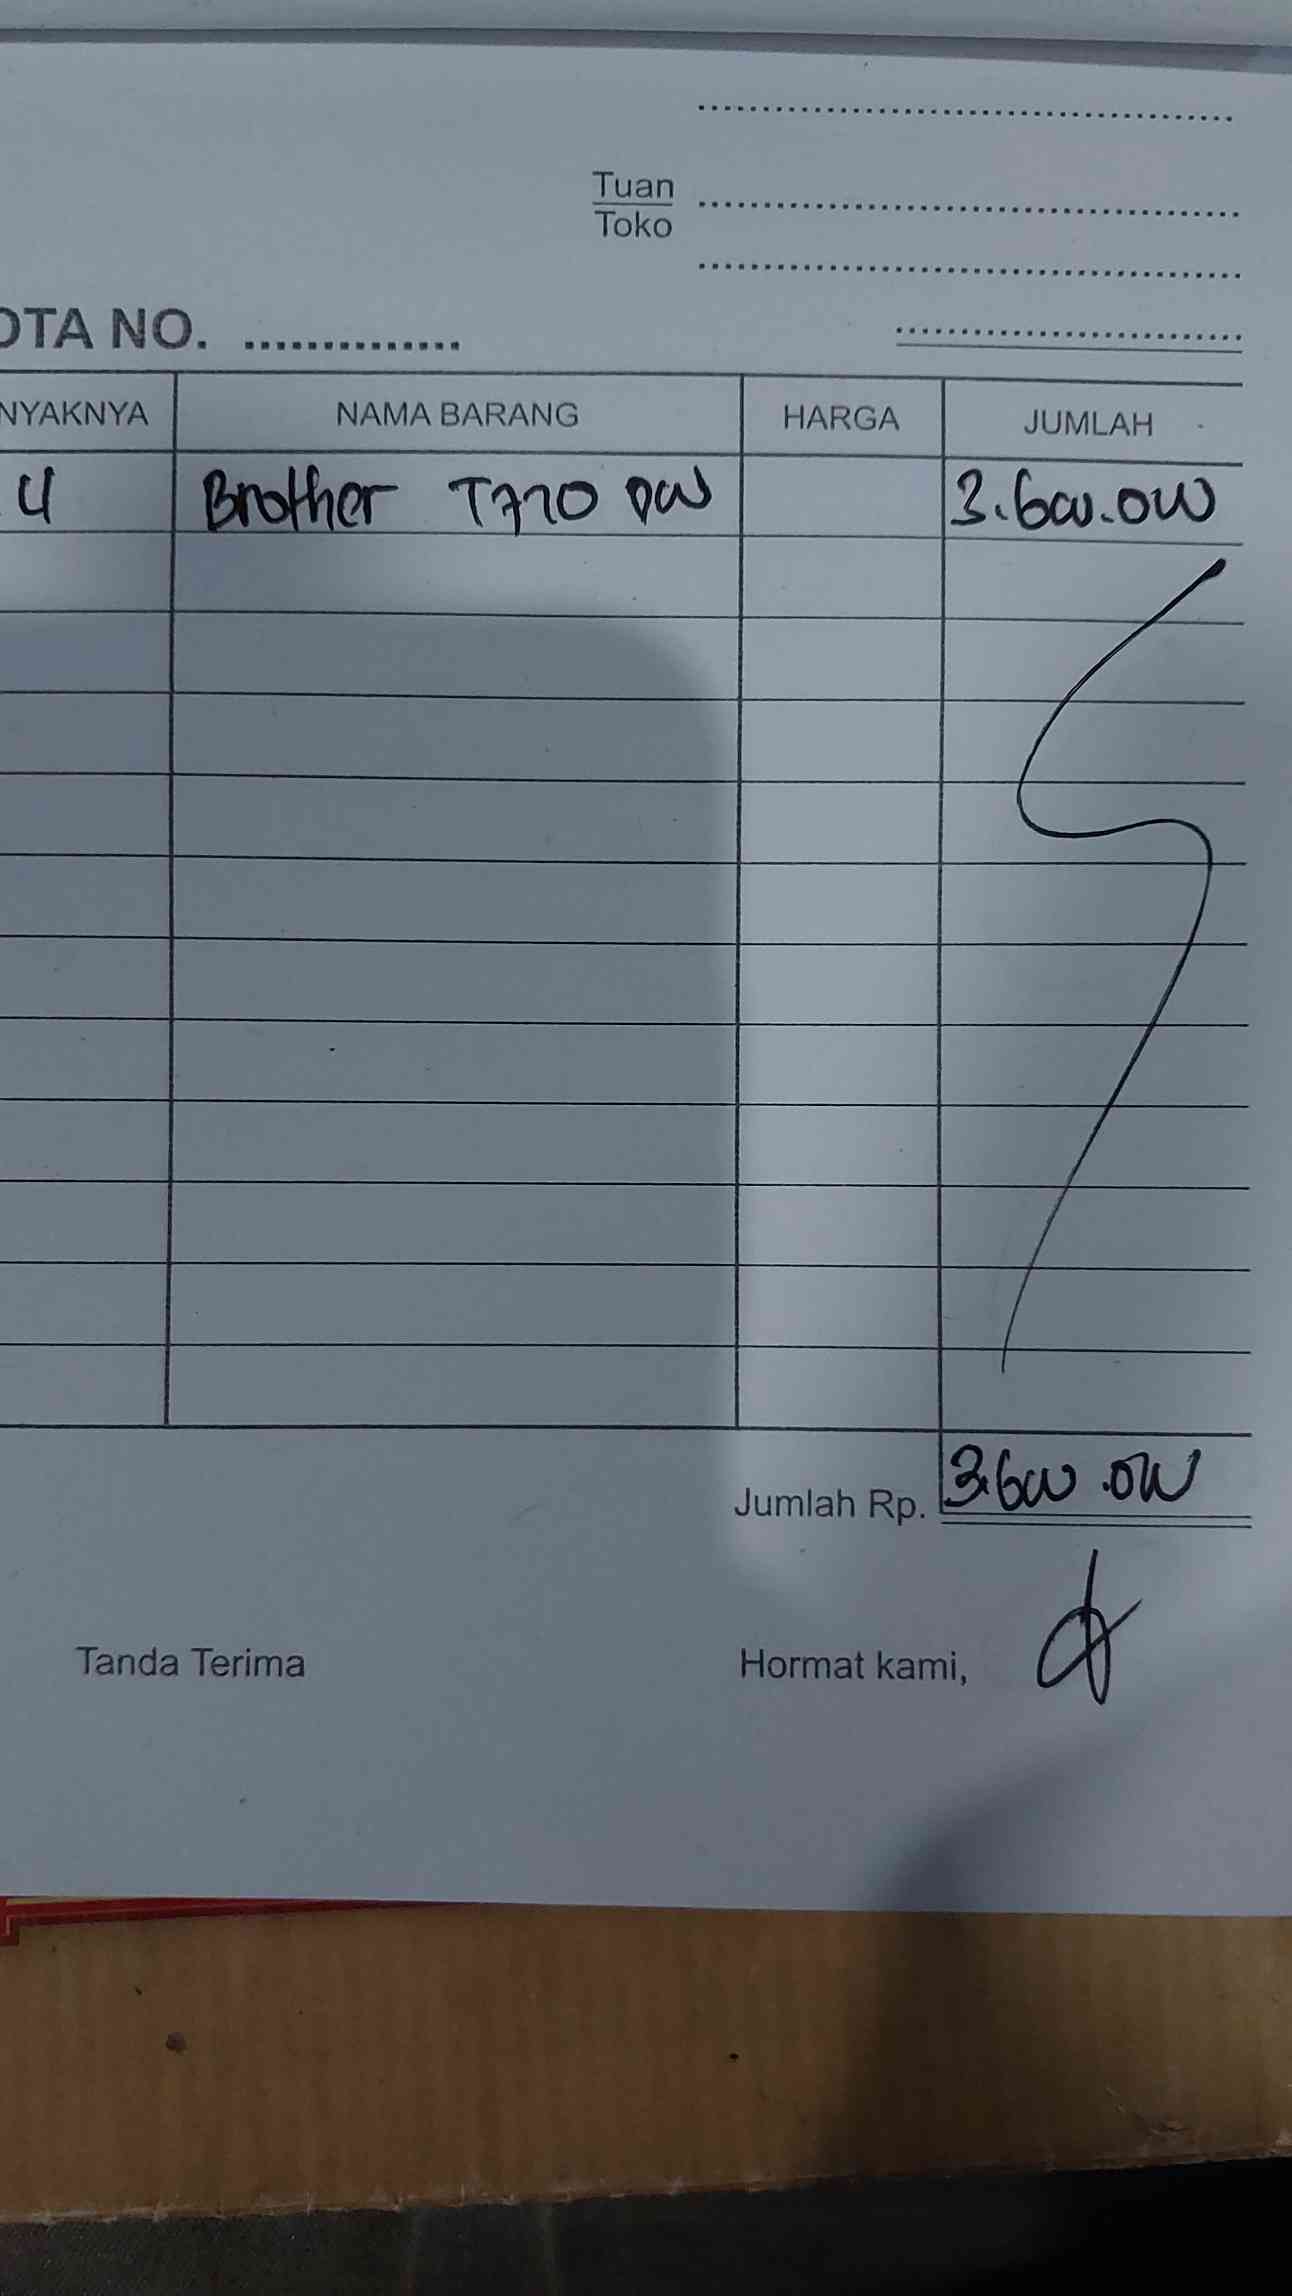 Tuan
Toko
OTA NO. ..............
NYAKNYA NAMA BARANG HARGA JUMLAH
4 Brother T720 DW 3.600.000
Jumlah Rp. 3.600.000
Tanda Terima Hormat kami,